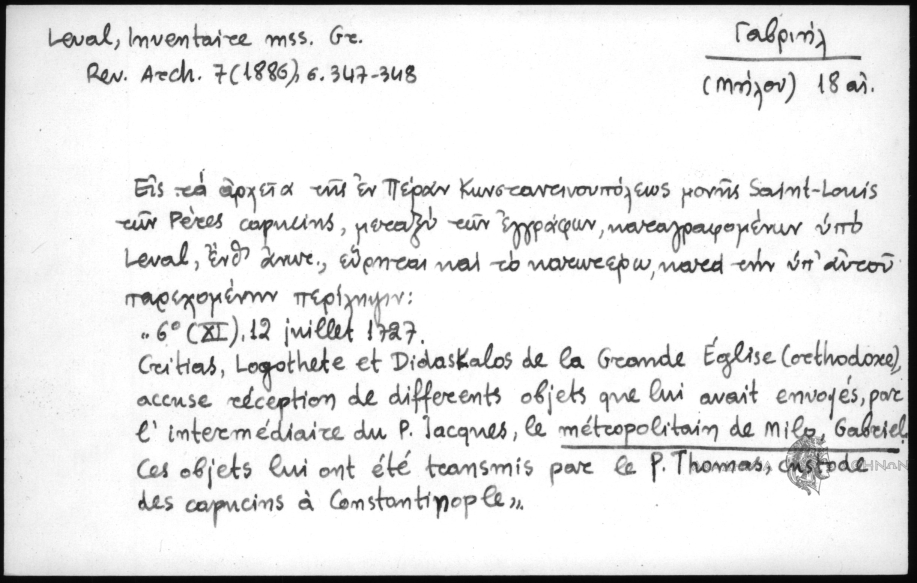 Leval, Inventaire mss. Gr.
Rev. Arch. 7 (1886), σ. 347-348
Γαβριήλ
(Μήλου) 18 αἰ.
Εἰς τά ἀρχεῖα τῆς ἐν Πέραν Κωνσταντινουπόλεως μονῆς Saint-Louis
τῶν Pères capucins, μεταξύ τῶν ἐγγράφων, καταγραφομένων ὑπό
Leval, ἔνθ' ἀνωτ., εὕρηται καί τό κατωτέρω, κατά τήν ὑπ' αὐτοῦ
παρεχομένην περίληψιν:
„6° (XI). 12 juillet 1727.
Critias, Logothete et Didaskalos de la Grande Église (orthodoxe),
accuse réception de differents objets que lui avait envoyés, par
l'intermédiaire du P. Jacques, le métropolitain de Milo, Gabriel.
Ces objets lui ont été transmis par le P. Thomas, custode
des capucins à Constantinople„.